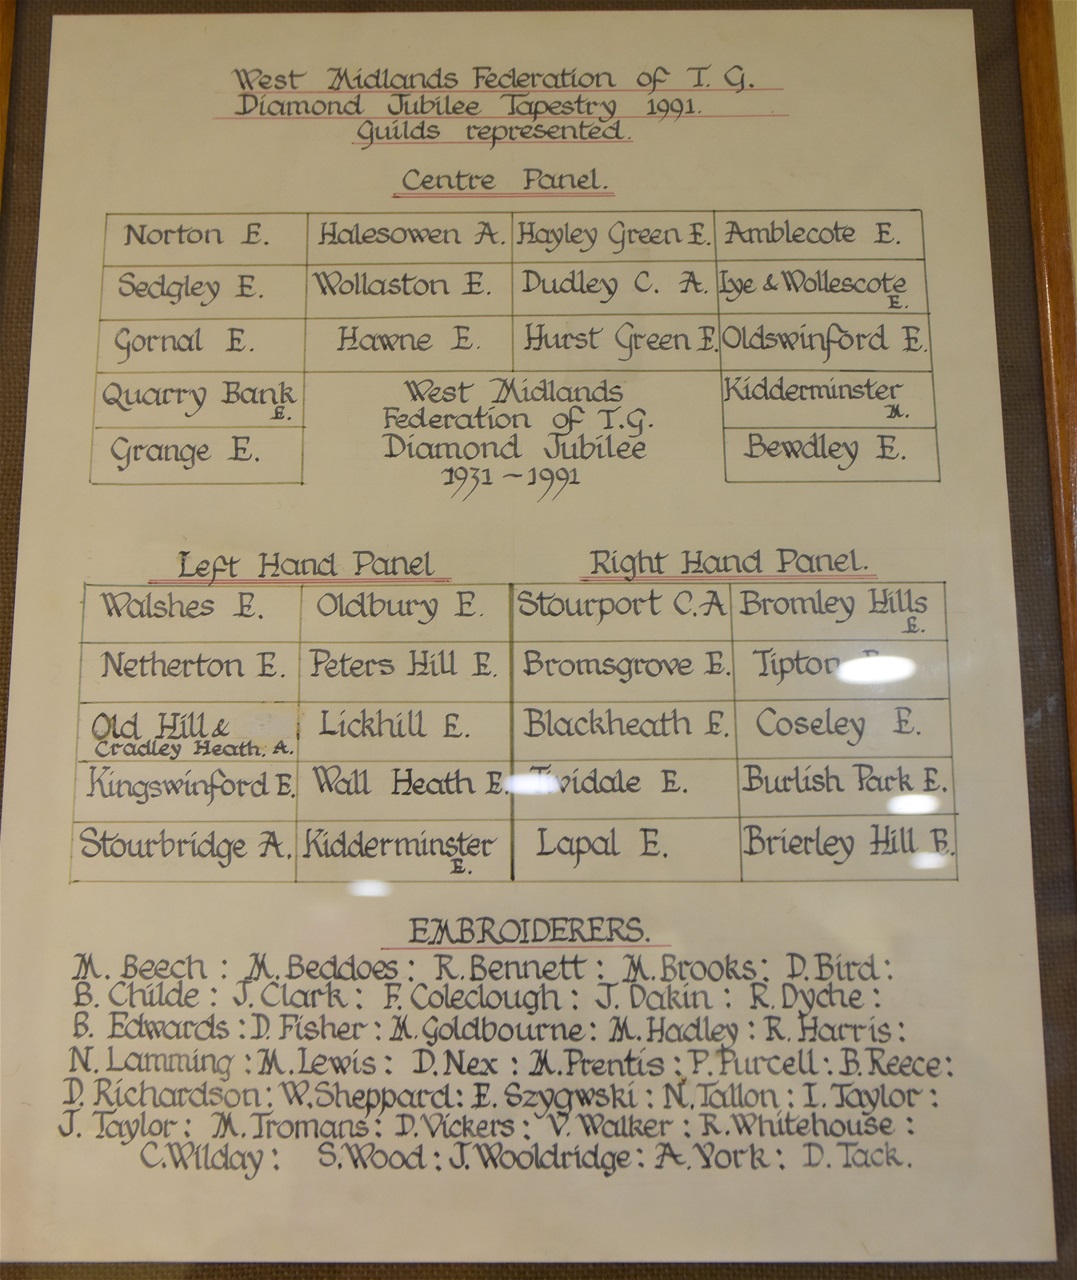 West Midlands Federation of T. G.
Diamond Jubilee Tapestry 1991.
Guilds represented.
Centre Panel.
Norton E. Halesowen A. Hayley Green E. Amblecote E.
Sedgley E. Wollaston E. Dudley C. A. Lye & Wollescote E.
Gornal E. Hawne E. Hurst Green E. Oldswinford E.
Quarry Bank E. West Midlands Kidderminster M.
Federation of T.G.
Grange E. Diamond Jubilee Bewdley E.
1931 - 1991
Left Hand Panel Right Hand Panel.
Walshes E. Oldbury E. Stourport C.A Bromley Hills E.
Netherton E. Peters Hill E. Bromsgrove E. Tipton
Old Hill & Lickhill E. Blackheath E. Coseley E.
Cradley Heath. A.
Kingswinford E. Wall Heath E. Tividale E. Burlish Park E.
Stourbridge A. Kidderminster E. Lapal E. Brierley Hill E.
EMBROIDERERS.
M. Beech : M. Beddoes : R. Bennett : M. Brooks : D. Bird :
B. Childe : J. Clark : F. Coleclough : J. Dakin : R. Dyche :
B. Edwards : D. Fisher : M. Goldbourne : M. Hadley : R. Harris :
N. Lamming : M. Lewis : D. Nex : M. Prentis : P. Purcell : B. Reece :
D. Richardson : W. Sheppard : E. Szygwski : N. Tallon : I. Taylor :
J. Taylor : M. Tromans : D. Vickers : V. Walker : R. Whitehouse :
C. Wilday : S. Wood : J. Wooldridge : A. York : D. Tack.